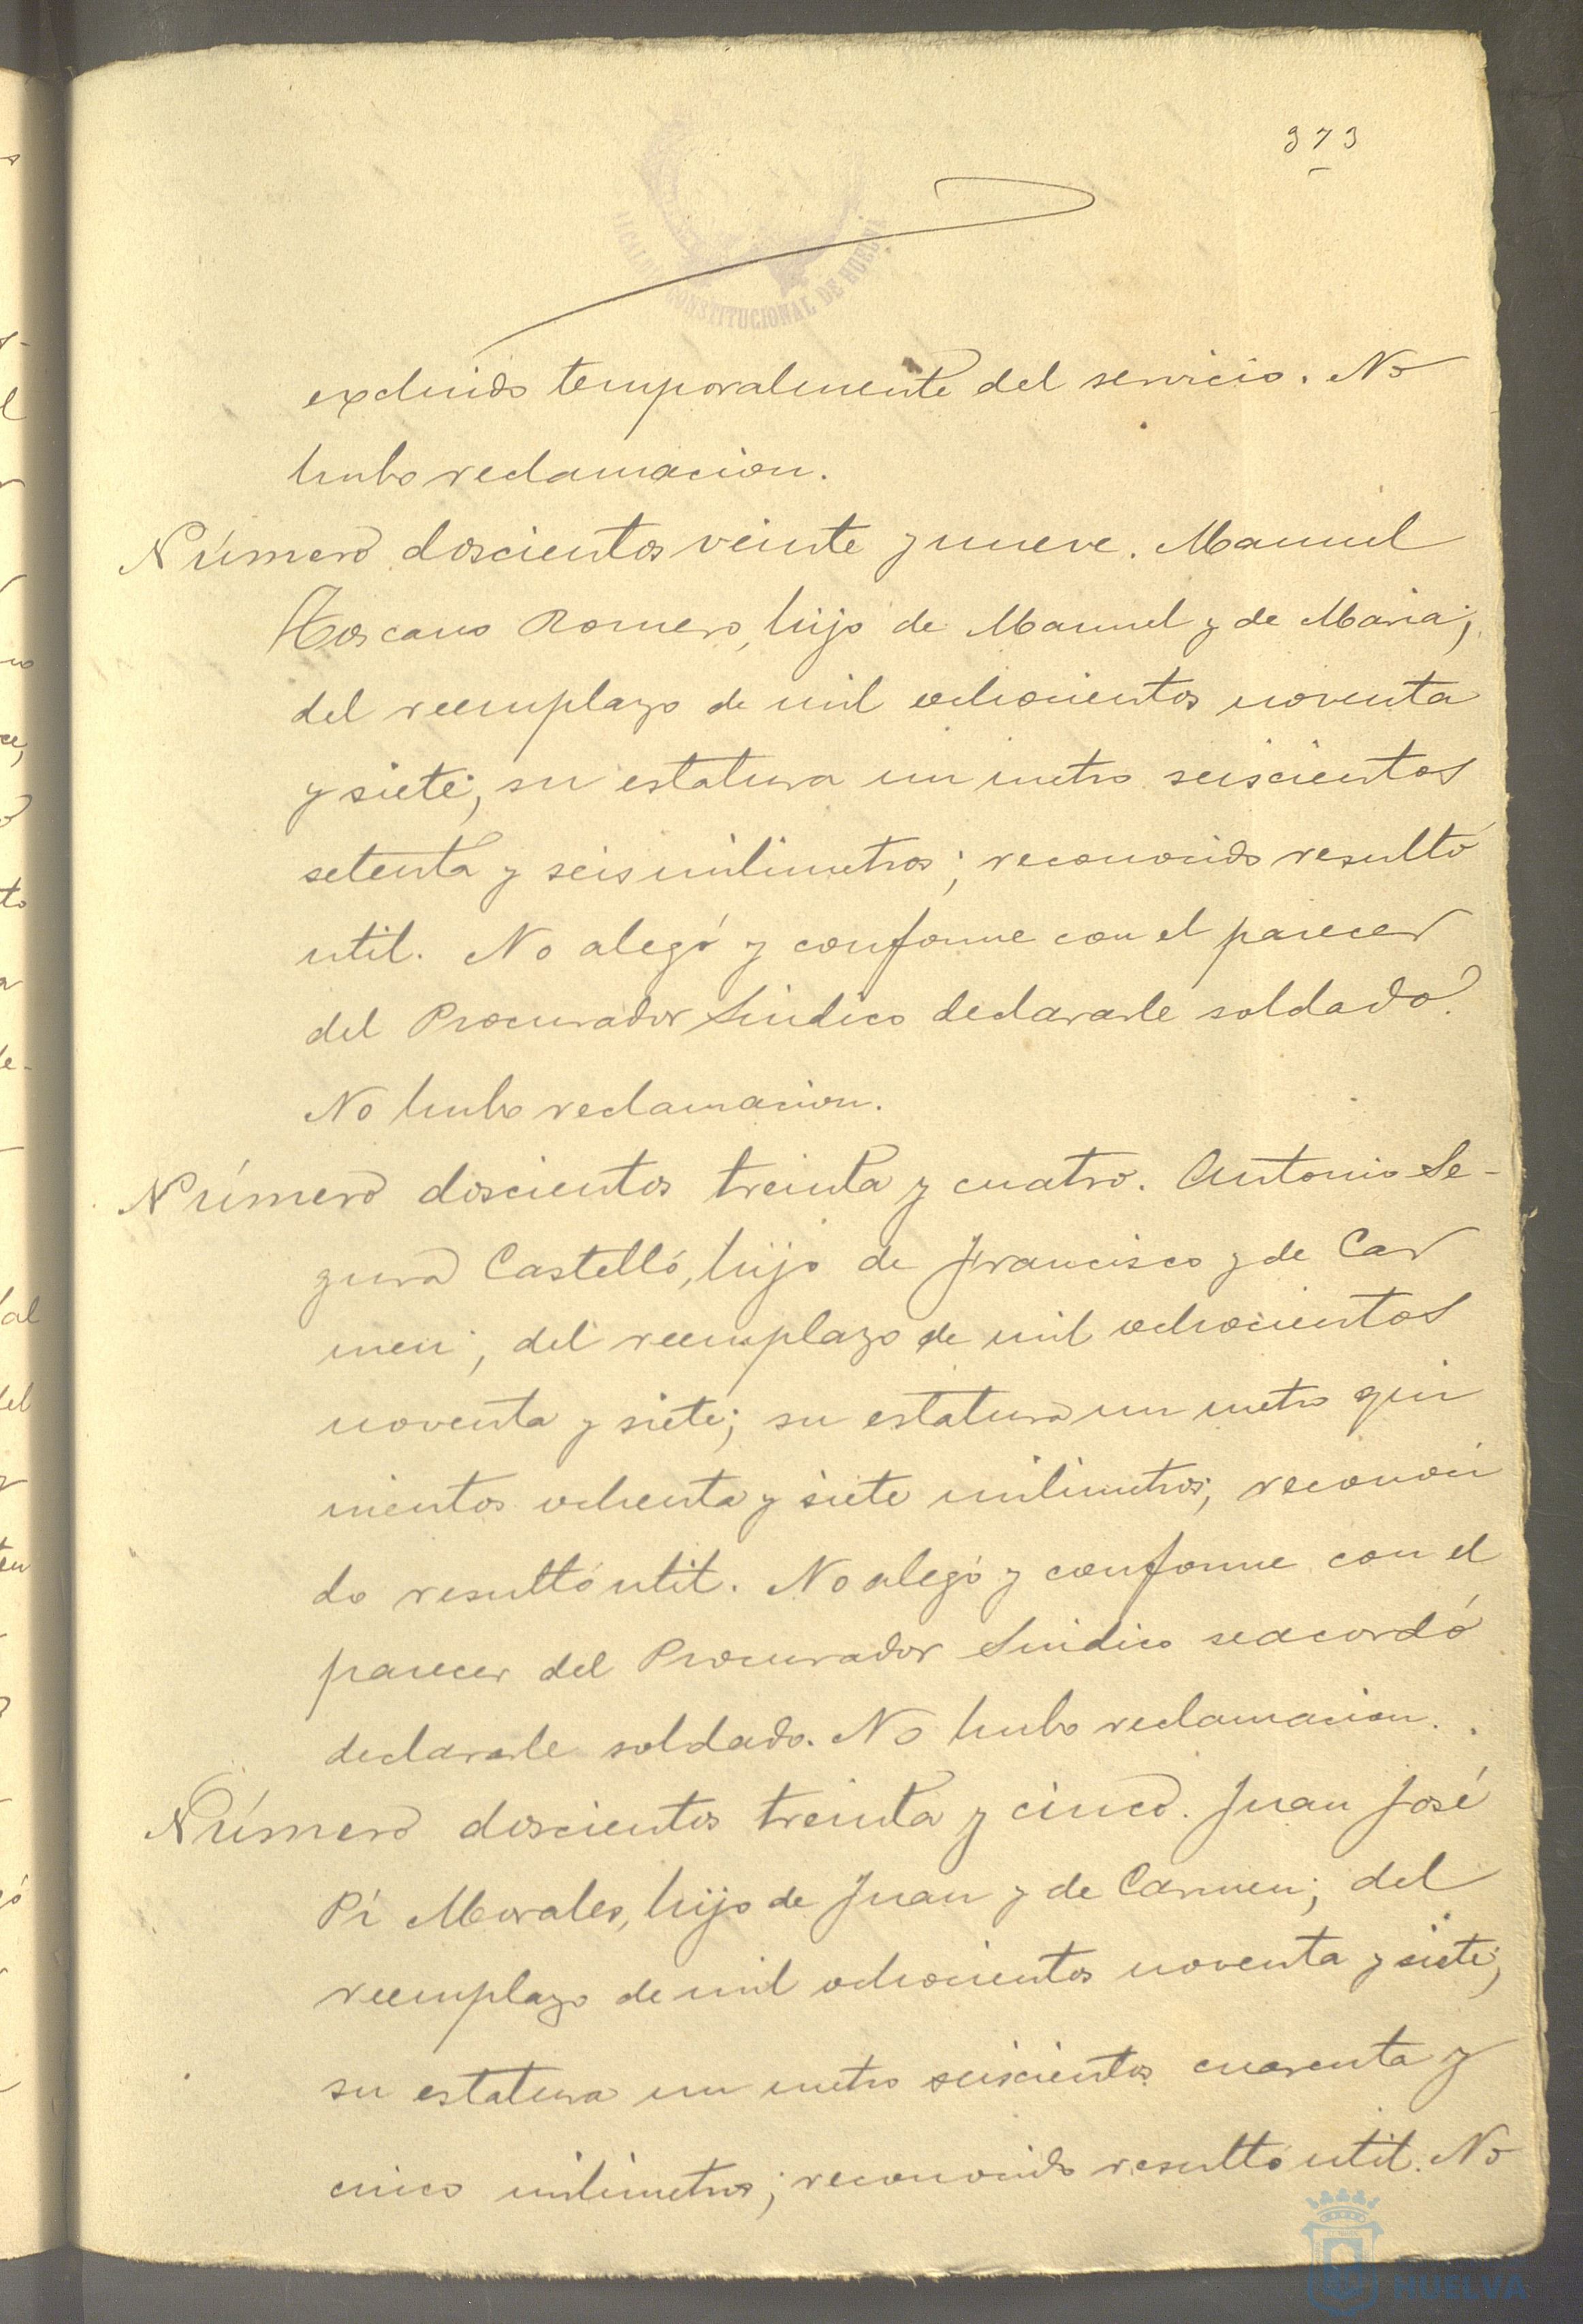 373
ALCALDIA CONSTITUCIONAL DE HUELVA
excluido temporalmente del servicio. No
hubo reclamacion.
Número doscientos veinte y nueve. Manuel
Toscano Romero, hijo de Manuel y de Maria;
del reemplazo de mil ochocientos noventa
y siete; su estatura un metro seiscientos
setenta y seis milimetros; reconocido resultó
util. No alegó y conforme con el parecer
del Procurador Sindico declararle soldado.
No hubo reclamacion.
Número doscientos treinta y cuatro. Antonio Se-
gura Castelló, hijo de Francisco y de Car
men; del reemplazo de mil ochocientos
noventa y siete; su estatura un metro qui
nientos ochenta y siete milimetros; reconoci
do resultó util. No alegó y conforme con el
parecer del Procurador Sindico se acordó
declararle soldado. No hubo reclamacion.
Número doscientos treinta y cinco. Juan José
Pí Morales, hijo de Juan y de Carmen; del
reemplazo de mil ochocientos noventa y siete;
su estatura un metro seiscientos cuarenta y
cinco milimetros; reconocido resultó util. No
HUELVA